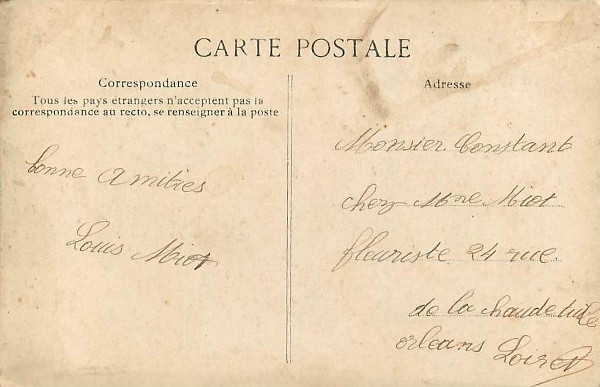 CARTE POSTALE
Correspondance
Tous les pays étrangers n'acceptent pas la
correspondance au recto, se renseigner à la poste
bonne amitiés
Louis Miot
Adresse
Monsier Constant
chez Mme Miot
fleuriste 24 rue.
de la chaude tuile
orleans Loiret